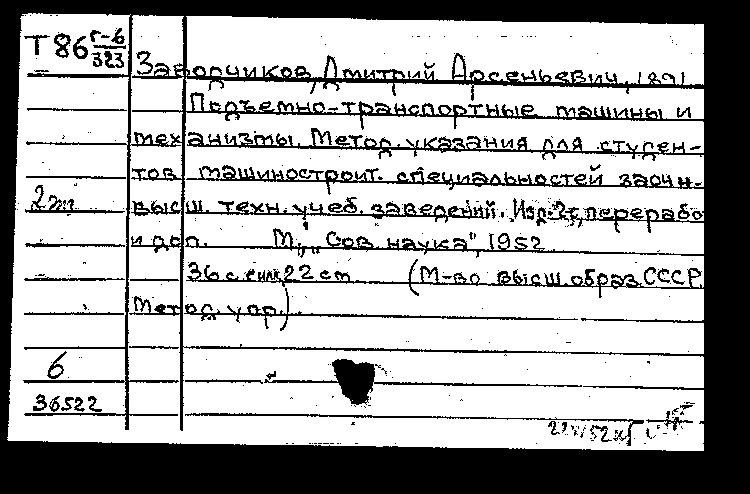 Т 86 г-6/323
Заводчиков, Дмитрий Арсеньевич, 1891
Подъемно-транспортные машины и
механизмы. Метод. указания для студен-
тов машиностроит. специальностей заочн.
2 т
высш. техн. учеб. заведений. Изд. 2е, перерабо
и доп. М., "Сов. наука", 1952
36 с. 22 см (М-во высш. образ. СССР.
Метод. упр.)
6
36522